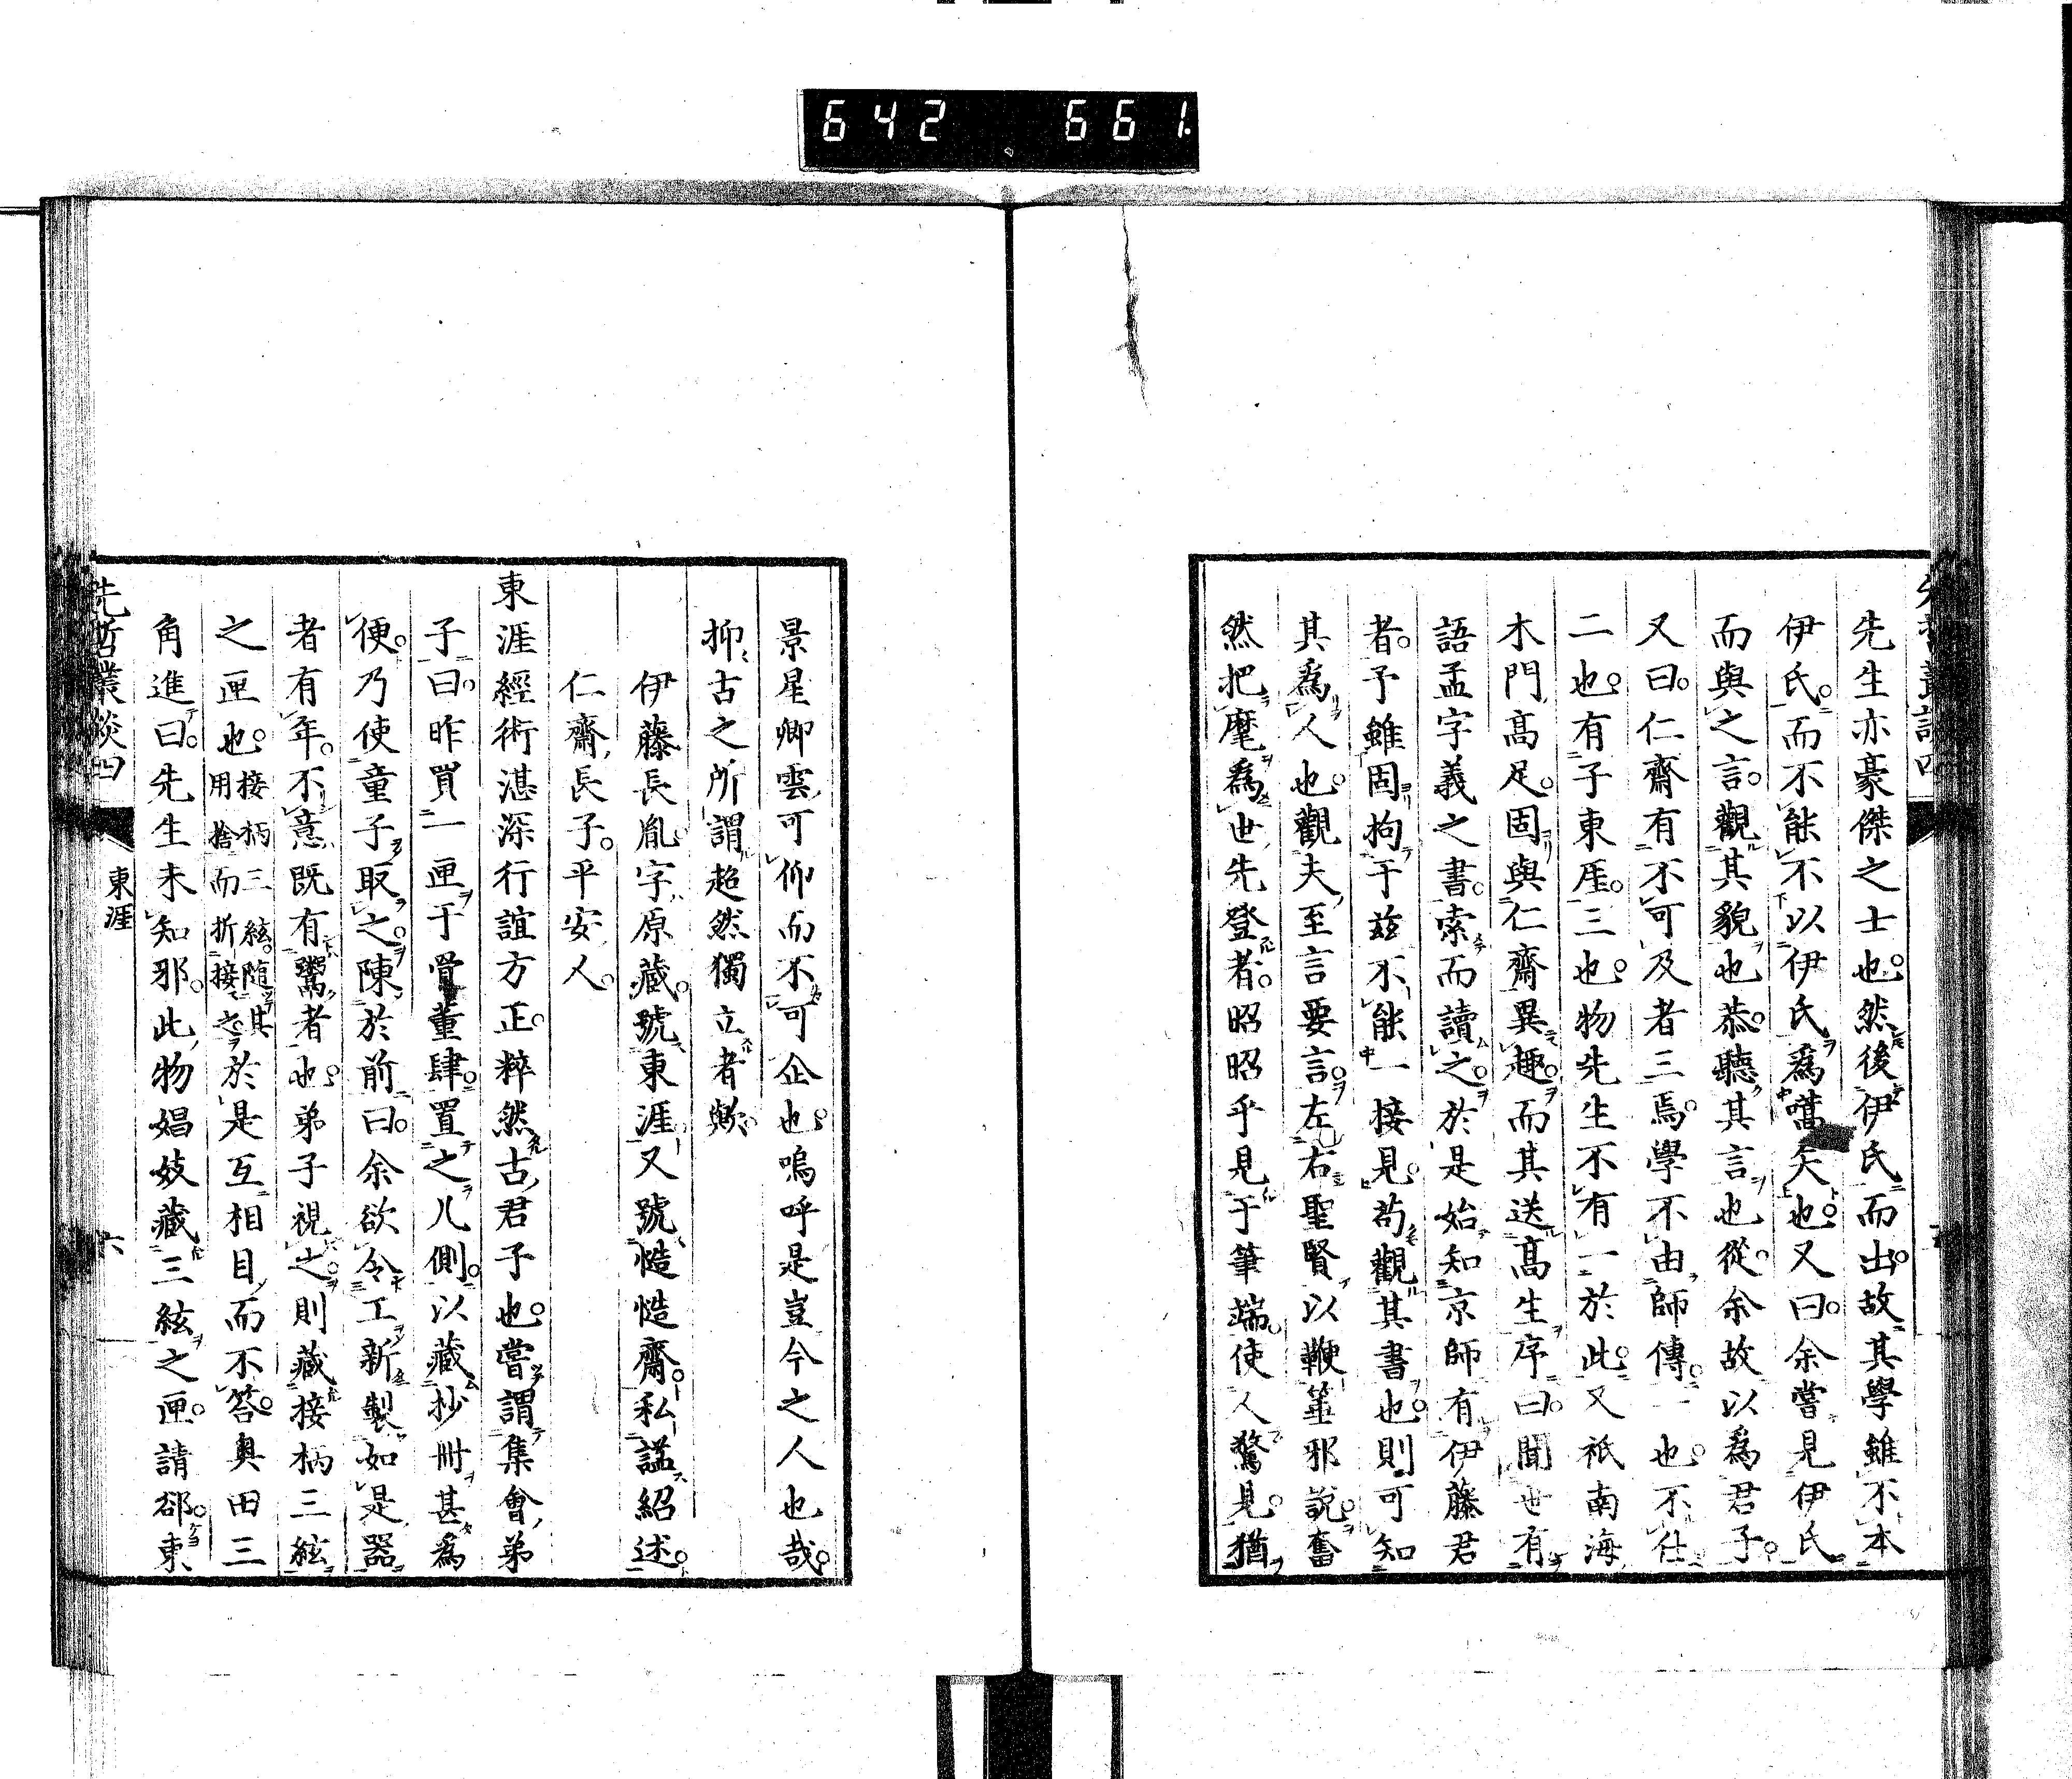 642 661.
先生亦豪傑之士也。然後伊氏而出。故其學雖不本
伊氏。而不能不以伊氏爲嚆矢也。又曰。余嘗見伊氏
而與之言。觀其貌也恭。聽其言也從。余故以爲君子。
又曰。仁齋有不可及者三焉。學不由師傳。一也。不仕
二也。有子東厓。三也。物先生不有一於此。又祇南海
木門高足。固與仁齋異趣。而其送高生序曰。聞世有
語孟字義之書。索而讀之。於是始知京師有伊藤君
者。予雖固拘于茲不能一接見。苟觀其書也。則可知
其爲人也。觀夫至言要言。左右聖賢以鞭箠邪說。奮
然把麾爲世先登者。昭昭乎見于筆端。使人驚見。猶
景星卿雲可仰而不可企也。嗚呼是豈今之人也哉。
抑古之所謂超然獨立者歟。
伊藤長胤。字原藏。號東涯。又號慥慥齋。私諡紹述。
仁齋長子。平安人。
東涯經術湛深。行誼方正。粹然古君子也。嘗謂集會弟
子曰。昨買一匣于骨董肆。置之几側。以藏抄册甚爲
便。乃使童子取之。陳於前曰。余欲令工新製如是器
者有年。不意既有鬻者也。弟子視之。則藏接柄三絃
之匣也。接柄三絃。隨其用捨而折接之。於是互相目而不答。奧田三
角進曰。先生未知邪。此物娼妓藏三絃之匣。請郤。東
先哲叢談四
東涯
六